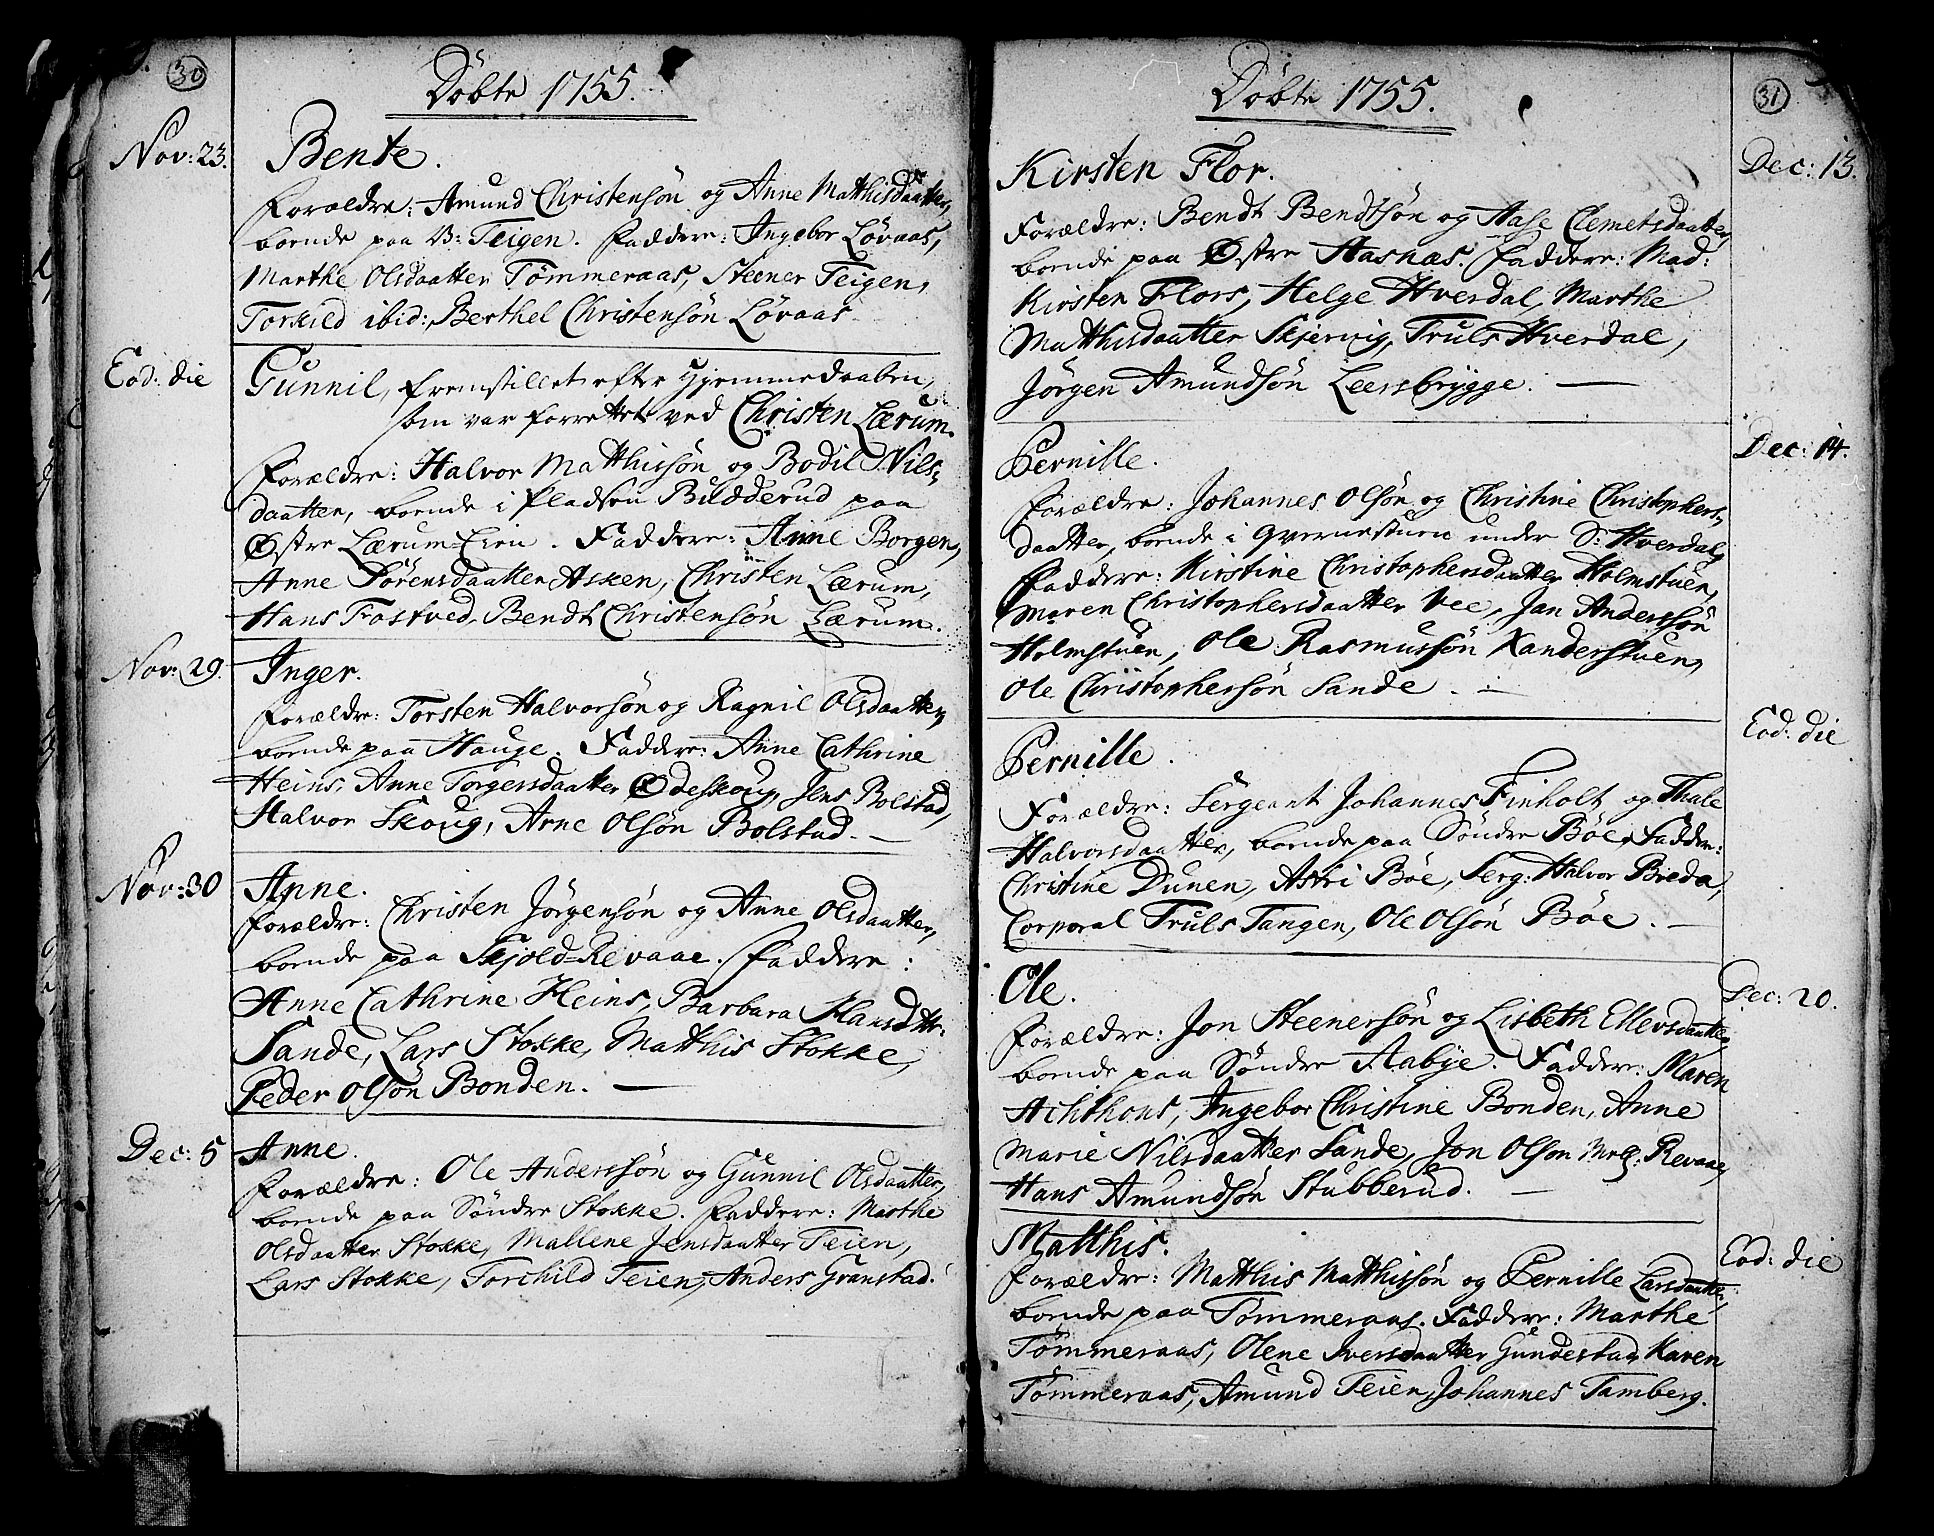 30
Döbte 1755.
Nov: 23.
Bente.
Forældre: Amund Christensön og Anne Matthisdaatter,
boende paa V: Teigen. Faddere: Ingebor Lövaas,
Marthe Olsdaatter Tömmeraas, Steener Teigen,
Torkild ibid: Berthel Christensön Lövaas
Eod: die
Gunnil, fremstillet efter Hjemmedaaben,
som var forrettet ved Christen Lærum.
Forældre: Halvor Matthissön og Bodil Nils-
daatter, boende i Pladsen Budderud paa
Østre Lærum-Eien. Faddere: Anne Borgen,
Anne Sörensdaatter Asken, Christen Lærum,
Hans Frostved, Bendt Christensön Lærum.
Nov: 29.
Inger.
Forældre: Torsten Halvorsön og Ragnil Olsdaatter,
boende paa Hauge. Faddere: Anne Cathrine
Heins, Anne Torgersdaatter Ødeskoug, Jens Bolstad,
Halvor Skoug, Arne Olsön Bolstad.
Nov: 30
Anne.
Forældre: Christen Jörgensön og Anne Olsdaatter,
boende paa Skjold-Revaae. Faddere:
Anne Cathrine Heins, Barbara Hansdttr.
Sande, Lars Stokke, Matthis Stokke,
Peder Olsön Bonden.
Dec: 5
Anne.
Forældre: Ole Anderssön og Gunnil Olsdaatter,
boende paa Söndre Stokke. Faddere: Marthe
Olsdaatter Stokke, Mallene Jensdaatter Teien,
Lars Stokke, Torchild Teien, Anders Granstad.
31
Döbte 1755.
Dec: 13.
Kirsten Flor.
Forældre: Bendt Bendtsön og Aase Clemetsdaatter,
boende paa Østre Aasnas. Faddere: Mad:
Kirsten Flors, Helge Hverdal, Marthe
Matthisdaatter Skjervig, Truls Hverdal,
Jörgen Amundsön Leersbrygge.
Dec: 14.
Pernille.
Forældre: Johannes Olsön og Christine Christophers-
daatter, boende i Qvernestuen under S: Hverdal,
Faddere: Kirstine Christophersdaatter Holmstuen,
Maren Christophersdaatter Vee, Jan Anderssön
Holmstuen, Ole Rasmussön Xanderstuen,
Ole Christophersön Sande.
Eod: die
Pernille.
Forældre: Sergeant Johannes Finholt og Thale
Halvorsdaatter, boende paa Söndre Böe, Fadder:
Christine Dunen, Astri Böe, Serg: Halvor Breda,
Corporal Truls Tangen, Ole Olsön Böe.
Dec: 20.
Ole.
Forældre: Jon Steenersön og Lisbeth Ellevsdaatter,
boende paa Söndre Aabye. Faddere: Maren
Achthons, Ingebor Christine Bonden, Anne
Marie Nilsdaatter Sande, Jon Olsön Mell: Revaae,
Hans Amundsön Stubberud.
Eod: die
Matthis.
Forældre: Matthis Matthissön og Pernille Larsdaatter,
boende paa Tömmeraas. Faddere: Marthe
Tömmeraas, Olene Iversdaatter Gundestad, Karen
Tömmeraas, Amund Teien, Johannes Tamberg.